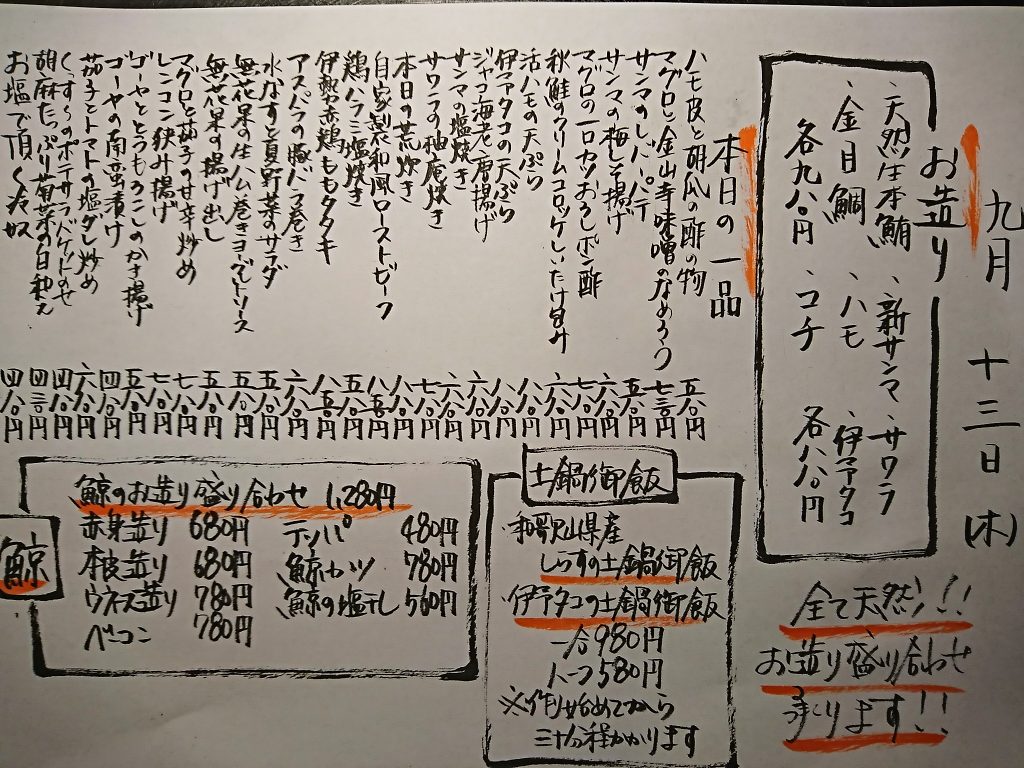 九月 十三日(木)
お造り
、天然生本鮪 、新サンマ 、サワラ
、金目鯛 、ハモ 、伊予タコ
各九八〇円 、コチ 各八八〇円
全て天然!!
お造り盛り合わせ
承ります!!
本日の一品
ハモ皮と胡瓜の酢の物 五八〇円
マグロと金山寺味噌のなめろう 七三〇円
サンマのレバーパテ 五八〇円
サンマの梅しそ揚げ 六八〇円
マグロの一口カツおろしポン酢 七八〇円
秋鮭のクリームコロッケしいたけ包み
活ハモの天ぷら 八八〇円
伊予タコの天ぷら
ジャコ海老唐揚げ 六八〇円
サンマの塩焼き 六八〇円
サワラの柚庵焼き 七八〇円
本日の荒炊き 八八〇円
自家製和風ローストビーフ
鶏ハラミ塩焼き 五八〇円
伊勢赤鶏ももタタキ
アスパラの豚バラ巻き 六八〇円
水なすと夏野菜のサラダ 五八〇円
無花果の生ハム巻きヨーグルトソース 五八〇円
無花果の揚げ出し 五八〇円
マグロと茄子の甘辛炒め 七八〇円
レンコン狭み揚げ 七八〇円
ゴーヤととうもろこしのかき揚げ 五八〇円
ゴーヤの南蛮漬け 四八〇円
茄子とトマトの塩ダレ炒め 六八〇円
くんすくのポテサラバケットのせ 四八〇円
胡麻たっぷり菊菜の白和え 四三〇円
お塩で頂く冷奴 四八〇円
土鍋御飯
・和歌山県産
しらすの土鍋御飯
・伊予タコの土鍋御飯
一合980円
ハーフ580円
※作り始めてから
三十分程かかります
鯨
鯨のお造り盛り合わせ 1,280円
赤身造り 680円 テッパ 480円
本皮造り 680円 鯨カツ 780円
ウネス造り 780円 鯨の塩干し 560円
ベーコン 780円